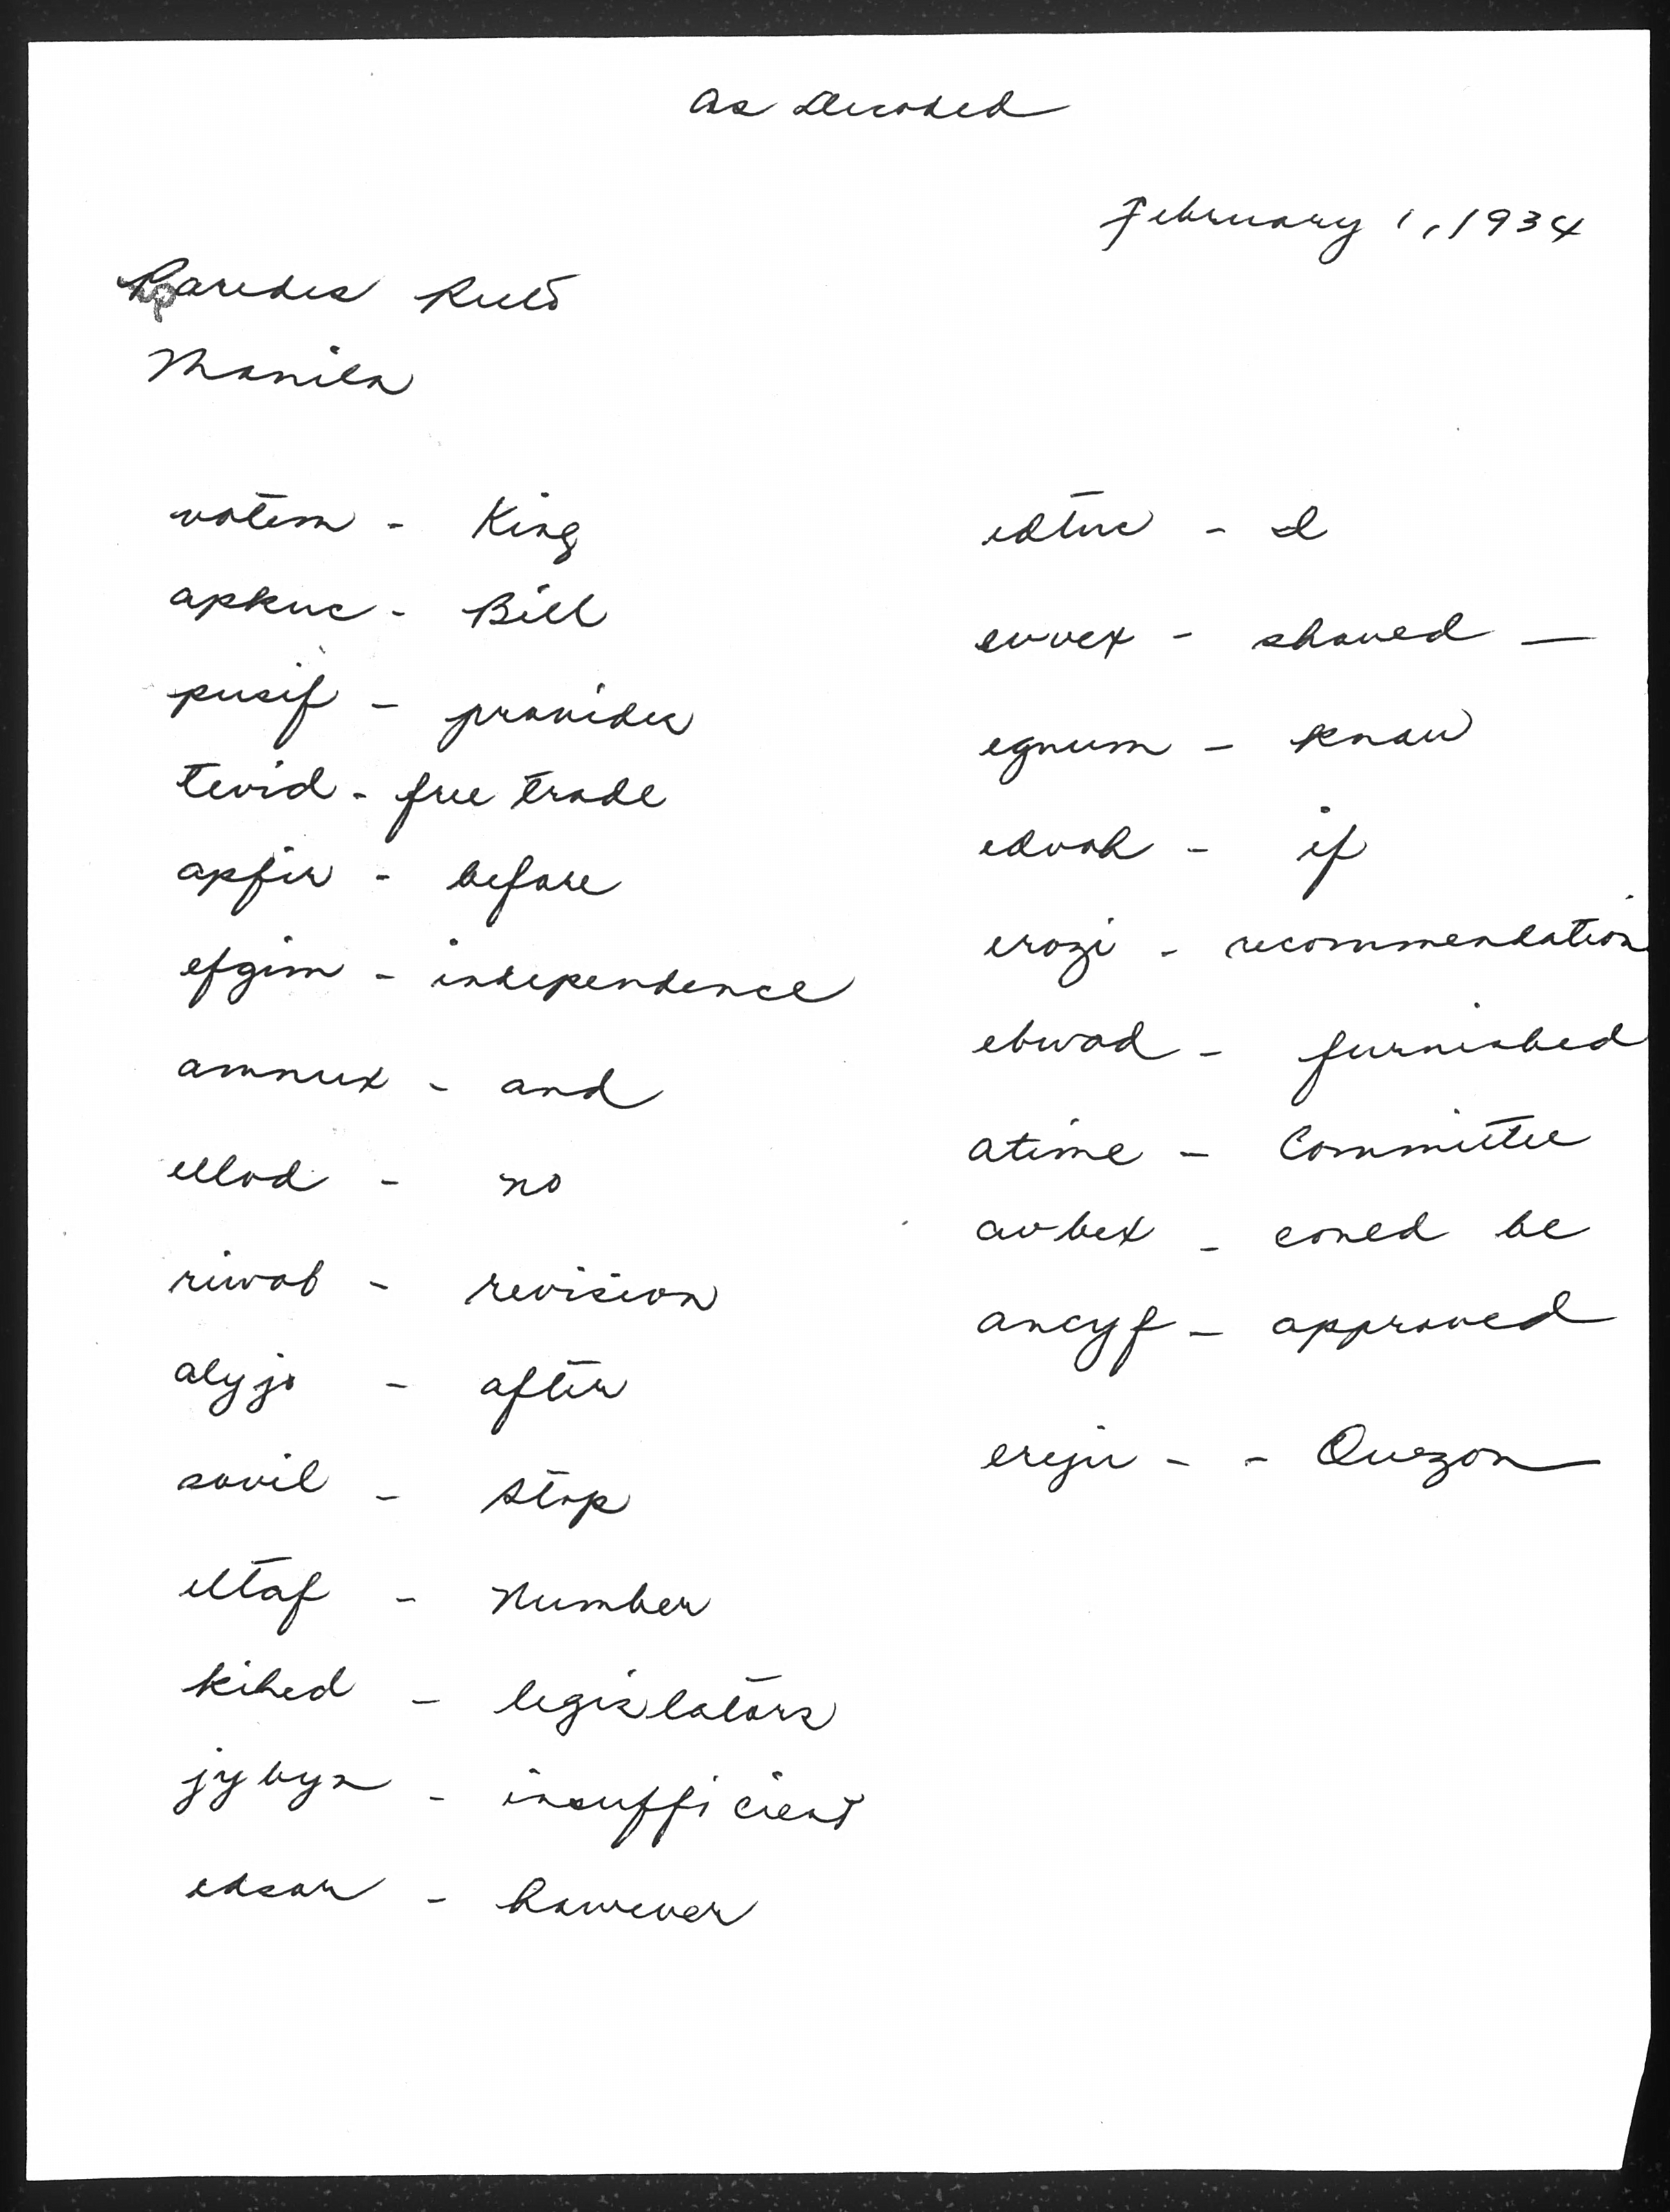 As Decoded
February 1, 1934
Paredes Recto
Manila
votem - King
apkuc - Bill
pusif - provides
tevid - free trade
apfir - before
efgim - independence
amnux - and
ellod - no
riwob - revision
alyjo - after
sovil - stop
eltaf - Number
kihed - legislators
jybyn - insufficient
edsar - however
edtuc - I
evvex - should —
egnum - know
edvok - if
erozi - recommendation
ebwad - furnished
atime - Committee
avbex - could be
ancyf - approved
ereju - - Quezon